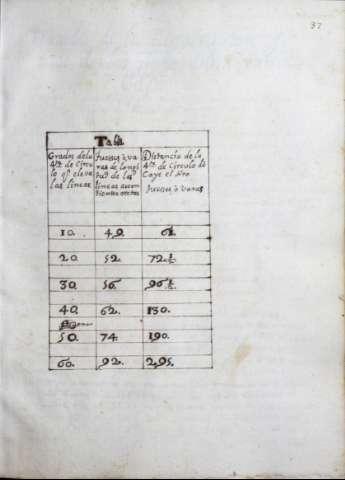 37
Tabla
Grados dela
4ta de Circu
lo qe eleva
las lineas
fuesus ò va
ras de longi
tud de las
lineas
Distancia de la
4ta de Circulo dò
Caye el
fuesus ò varas
10. 49. 61.
20. 52. 72 1/2
30. 56. 96 1/2
40. 62. 130.
50. 74. 190.
60. 92. 295.